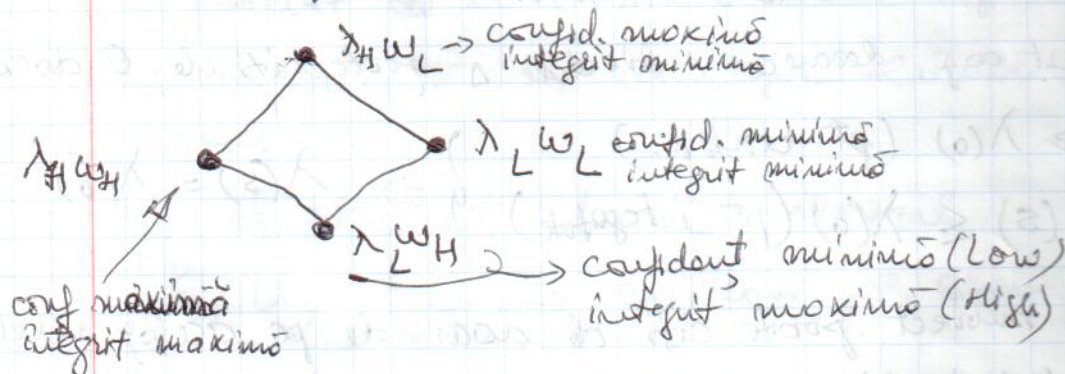 λ_H ω_L → confid. maximă
integrit minimă
λ_L ω_L confid. minimă
integrit minimă
λ_H ω_H
λ_L ω_H → confident minimă (Low)
integrit maximă (High)
conf maximă
integrit maximă